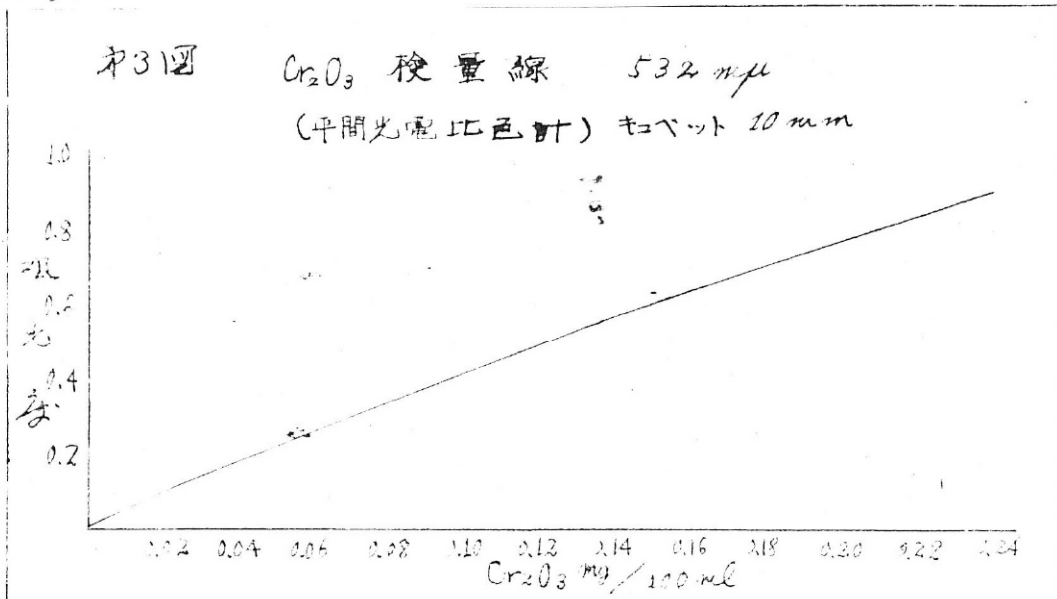 第3図 Cr₂O₃ 検量線 532 mμ
(平間光電比色計) キュベット 10mm
1.0
0.8
0.6
0.4
0.2
吸光度
0.02 0.04 0.06 0.08 0.10 0.12 0.14 0.16 0.18 0.20 0.22 0.24
Cr₂O₃ mg/100ml